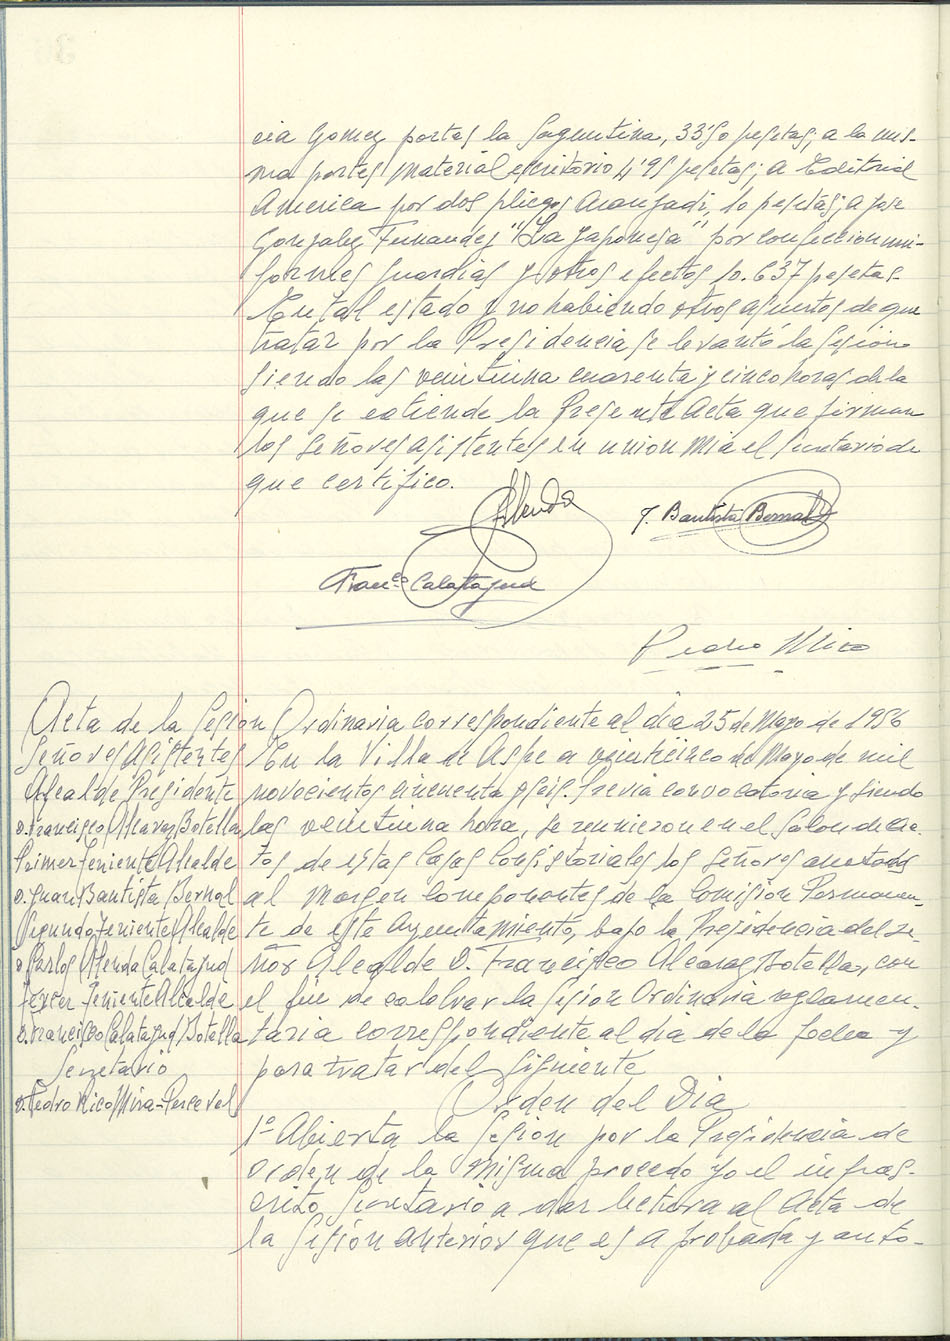 cia Gomez portes la Saguntina, 33'50 pesetas; a la mis-
ma portes material escritorio 4'95 pesetas; a Editorial
America por dos pliegos Aranzadi, 10 pesetas; a Jose
Gonzalez Fernandez "La Japonesa" por confeccion uni-
formes guardias y otros efectos 10.637 pesetas.
En tal estado y no habiendo otros asuntos de que
tratar por la Presidencia se levantó la sesión
siendo las veintiuna cuarenta y cinco horas de la
que se extiende la presente Acta que firman
los Señores asistentes en union mia el Secretario de
que certifico.
Alenda
J. Bautista Bernal
Franco Calatayud
Pedro Mico
Acta de la Sesión Ordinaria correspondiente al dia 25 de Mayo de 1956
Señores Asistentes
Alcalde Presidente
D. Francisco Alcaraz Botella
Primer Teniente Alcalde
D. Juan Bautista Bernal
Segundo Teniente Alcalde
D. Carlos Alenda Calatayud
Tercer Teniente Alcalde
D. Francisco Calatayud Botella
Secretario
D. Pedro Rico Mira-Perceval
En la Villa de Aspe a veinticinco de Mayo de mil
novecientos cincuenta y seis. Previa convocatoria y siendo
las veintiuna hora, se reunieron en el Salon de Ac-
tos de estas Casas Consistoriales los Señores anotados
al margen componentes de la Comision Permanen-
te de este Ayuntamiento, bajo la Presidencia del Se-
ñor Alcalde D. Francisco Alcaraz Botella, con
el fin de celebrar la Sesión Ordinaria reglamen-
taria correspondiente al dia de la fecha y
para tratar del siguiente
Orden del Dia
1º Abierta la sesión por la Presidencia de
orden de la misma procedo yo el infras-
crito Secretario a dar lectura al Acta de
la Sesión anterior que es aprobada y auto-